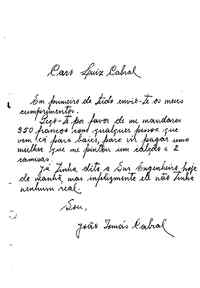 Caro Luiz Cabral
Em primeiro de tudo envio-te os meus
cumprimentos.
Peço-te por favor de me mandares
350 francos com qualquer pessoa que
vem cá para baixo, para ir pagar uma
mulher que me pintou um calção e 2
camisas.
Já tinha dito a Snr Engenheiro hoje
de manhã, mas infelizmente ele não tinha
nenhum real.
Sou,
João Tomás Cabral